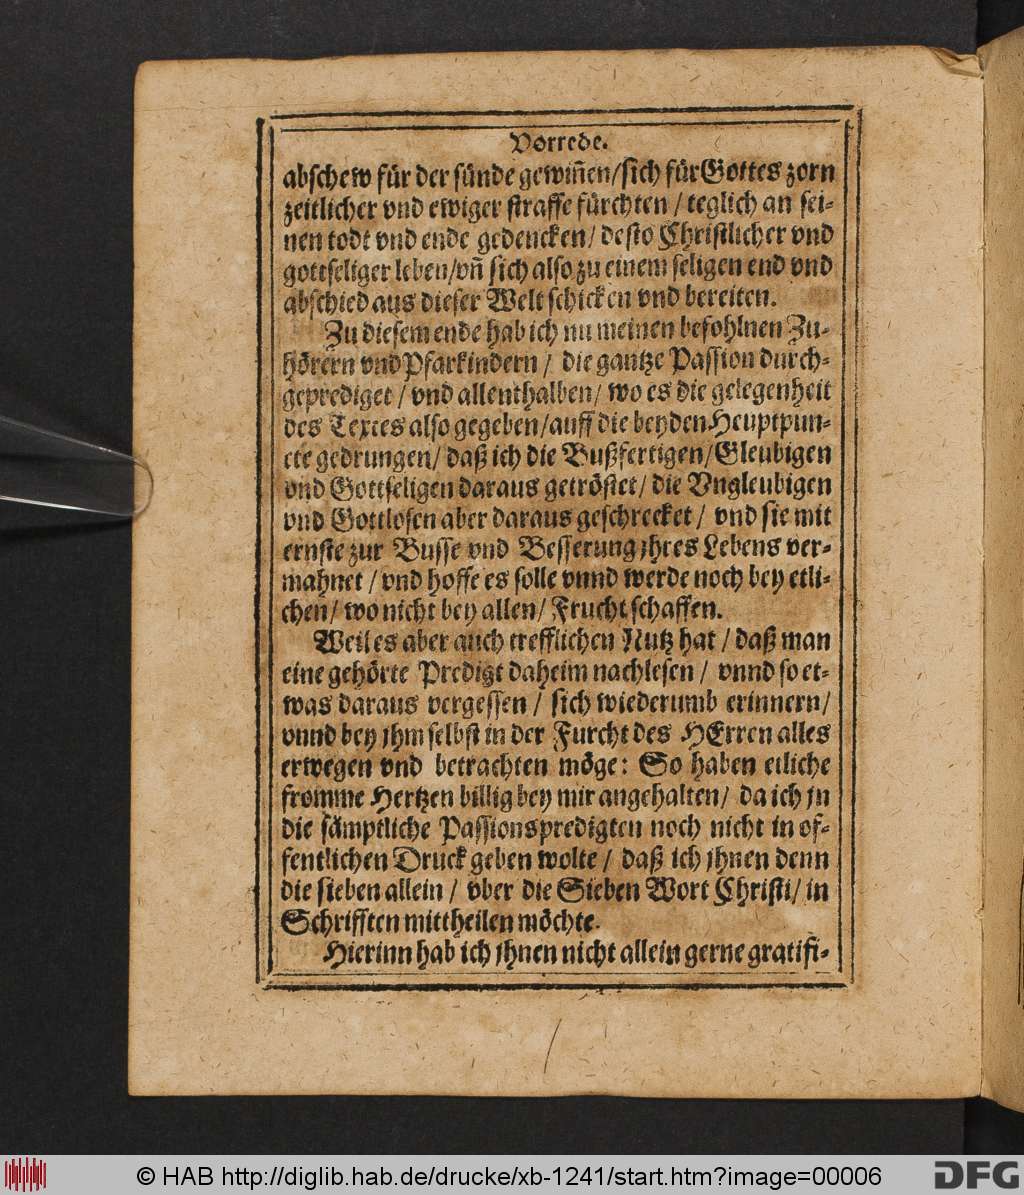 Vorrede.
abschew für der sünde gewiñen/sich für Gottes zorn
zeitlicher vnd ewiger straffe fürchten / teglich an sei-
nen todt vnd ende gedencken/ desto Christlicher vnd
gottseliger leben/vñ sich also zu einem seligen end vnd
abschied aus dieser Welt schicken vnd bereiten.
Zu diesem ende hab ich nu meinen befohlnen Zu-
hörern vnd Pfarkindern / die gantze Passion durch-
geprediget / vnd allenthalben/ wo es die gelegenheit
des Textes also gegeben/auff die beyden Heuptpun-
cte gedrungen/ daß ich die Bußfertigen/Gleubigen
vnd Gottseligen daraus getröstet/ die Vngleubigen
vnd Gottlosen aber daraus geschrecket / vnd sie mit
ernste zur Busse vnd Besserung jhres Lebens ver-
mahnet / vnd hoffe es solle vnnd werde noch bey etli-
chen/ wo nicht bey allen/ Frucht schaffen.
Weil es aber auch trefflichen Nutz hat / daß man
eine gehörte Predigt daheim nachlesen / vnnd so et-
was daraus vergessen / sich wiederumb erinnern/
vnnd bey jhm selbst in der Furcht des HErren alles
erwegen vnd betrachten möge: So haben etliche
fromme Hertzen billig bey mir angehalten/ da ich ja
die sämptliche Passionspredigten noch nicht in of-
fentlichen Druck geben wolte / daß ich jhnen denn
die sieben allein / vber die Sieben Wort Christi/ in
Schrifften mittheilen möchte.
Hierinn hab ich jhnen nicht allein gerne gratifi-
© HAB http://diglib.hab.de/drucke/xb-1241/start.htm?image=00006
DFG